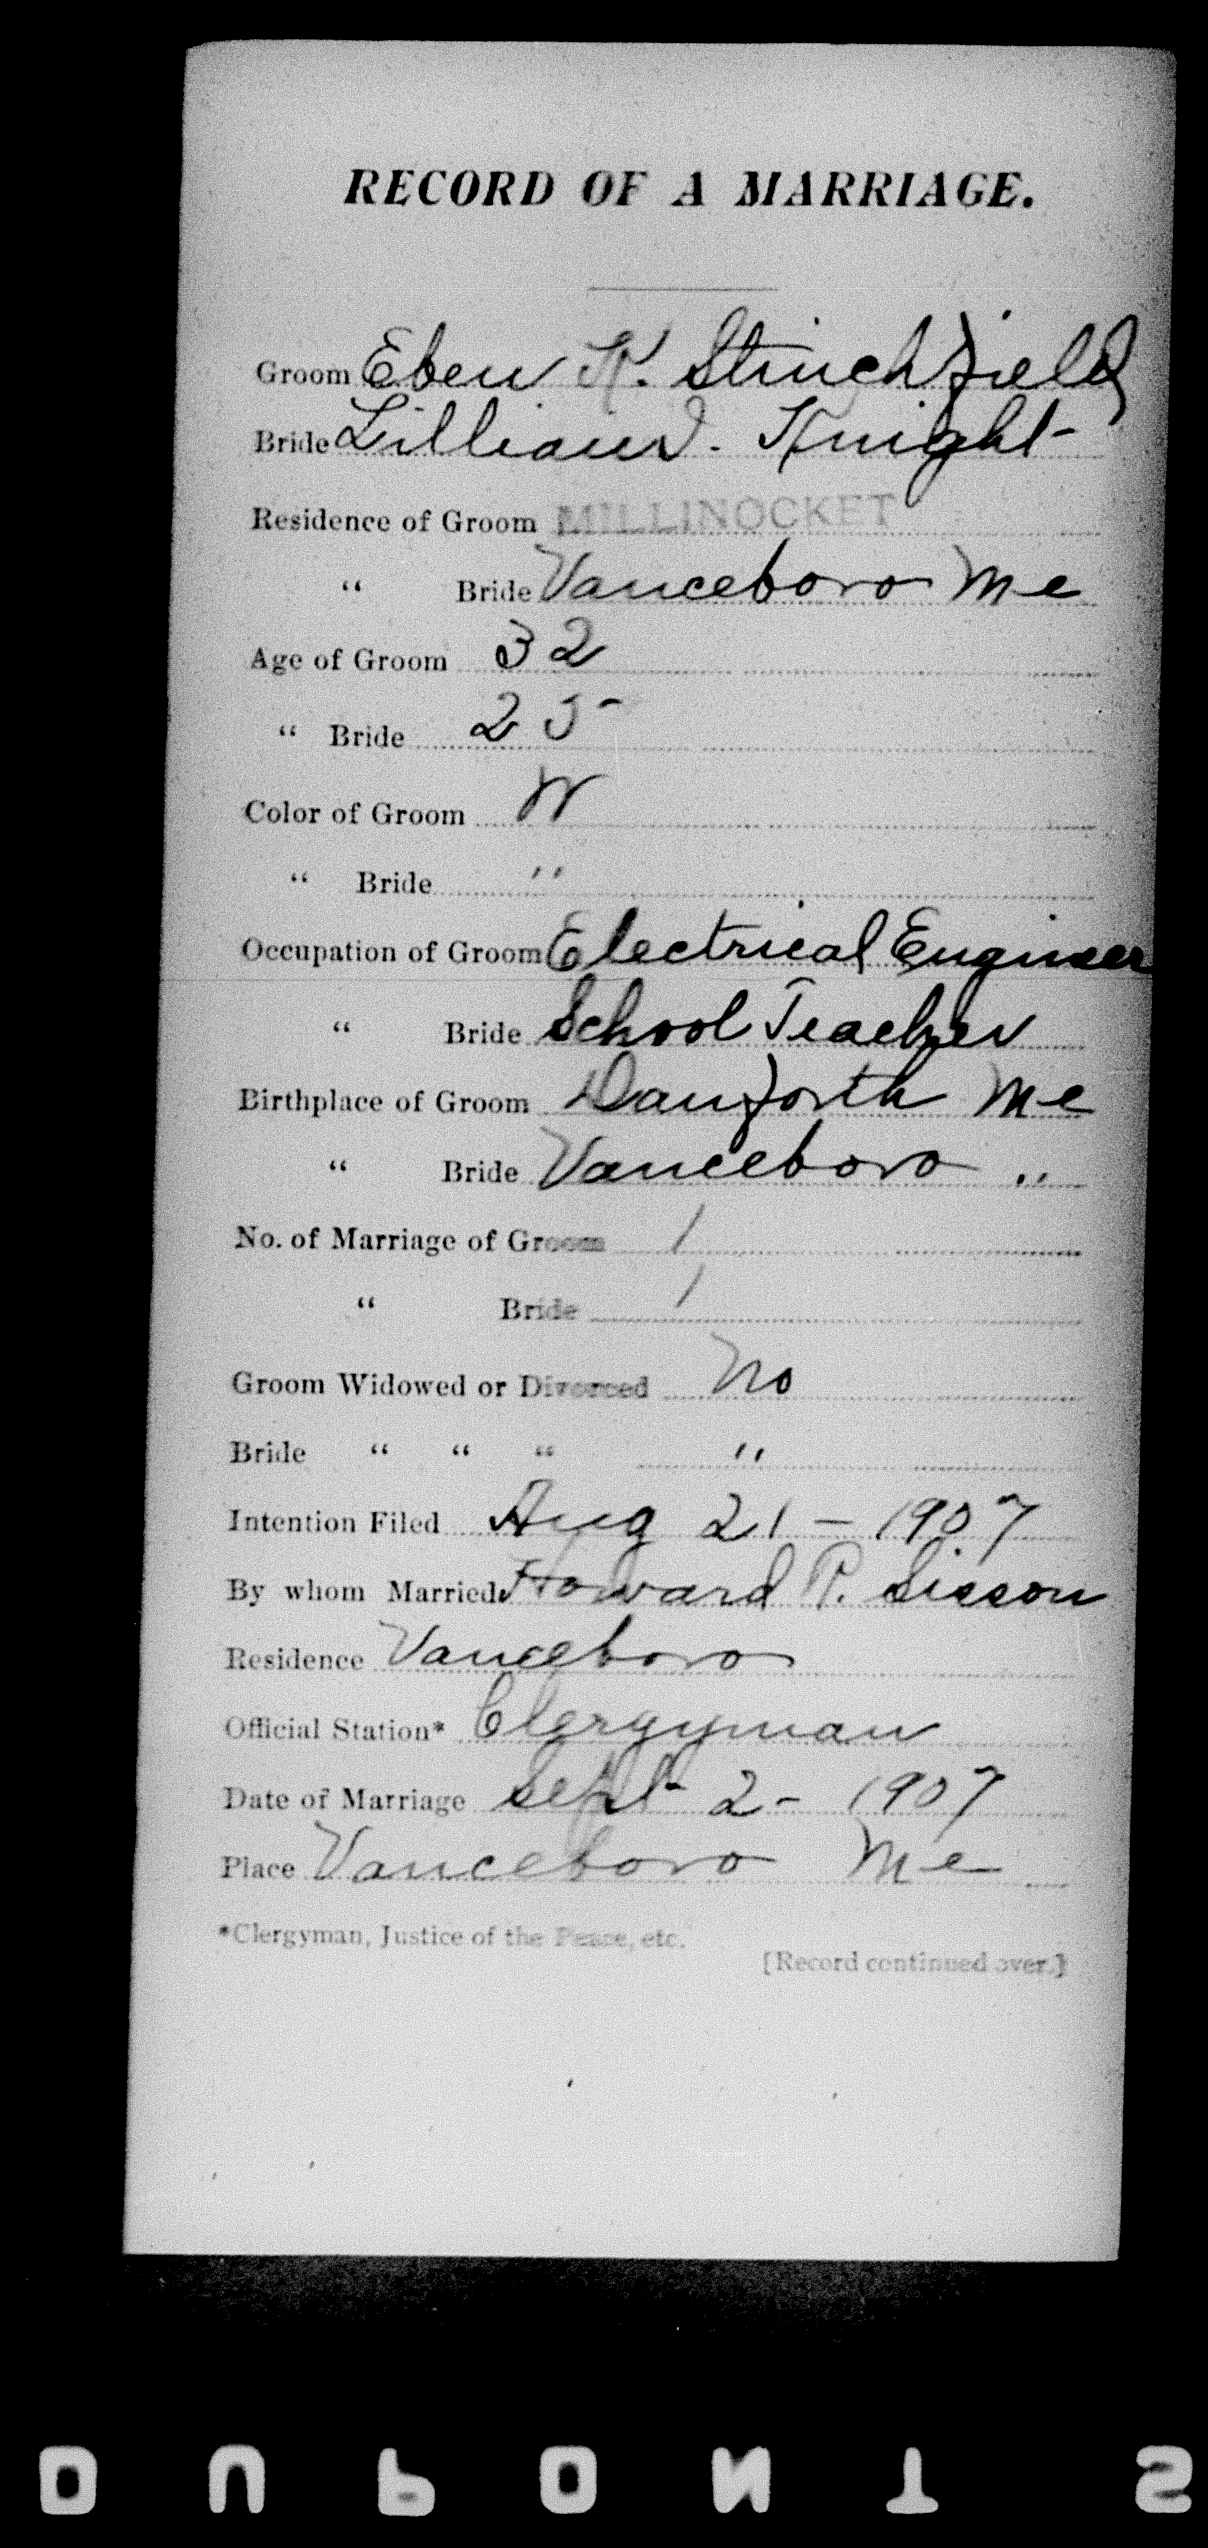 RECORD OF A MARRIAGE.
Groom Eben K. Stinchfield
Bride Lillian I. Knight
Residence of Groom MILLINOCKET
“ Bride Vanceboro Me
Age of Groom 32
“ Bride 25
Color of Groom W
“ Bride "
Occupation of Groom Electrical Engineer
“ Bride School Teacher
Birthplace of Groom Danforth Me
“ Bride Vanceboro "
No. of Marriage of Groom 1
“ Bride 1
Groom Widowed or Divorced No
Bride “ “ “ "
Intention Filed Aug 21 - 1907
By whom Married Howard P. Sisson
Residence Vanceboro
Official Station* Clergyman
Date of Marriage Sept 2 - 1907
Place Vanceboro Me
*Clergyman, Justice of the Peace, etc.
[Record continued over.]